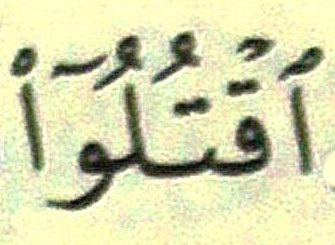 ٱقْتُلُوٓا۟